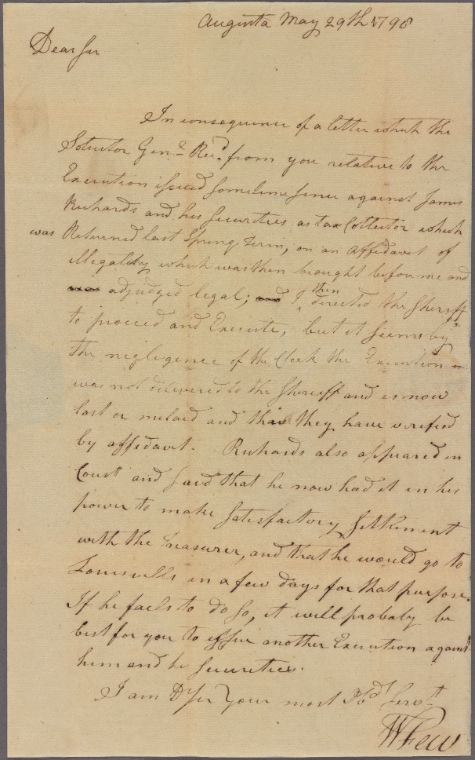 Augusta May 29th 1796
Dear Sir
In consequence of a letter which the
Solicitor Genl. Recd. from you relative to the
Execution issued sometime since against James
Richards and his Securities as tax Collector which
was Returned last Spring Term, on an affidavit of
Illegality which was then brought before me and
adjudged legal; and I then directed the Sheriff
to proceed and Execute, but it seems by
the neglegence of the Clerk the Execution
was not delivered to the Sheriff and is now
lost or mislaid and this they have verified
by affidavit. Richards also appeared in
Court and said that he now had it in his
power to make satisfactory Settlement
with the Treasurer, and that he would go to
Louisville in a few days for that purpose.
If he fails to do so, it will probaly be
best for you to issue another Execution against
him and he Securities.
I am Dr Sir Your most Obdt Servt.
W Few